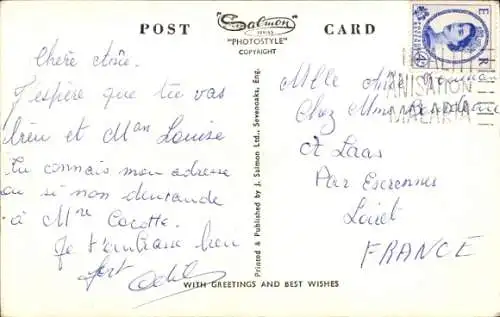 POST CARD
Salmon
SERIES
"PHOTOSTYLE"
COPYRIGHT
E R
ANISATION
MALARIA
Chère
J'espère que tu vas
bien et Man Louise
Tu connais mon adresse
ou si non demande
à Mme Cocotte.
Je t'embrasse bien
fort
Mlle
Chez Mme
à Laas
Par Escrennes
Loiret
FRANCE
Printed & Published by J. Salmon Ltd., Sevenoaks, Eng.
WITH GREETINGS AND BEST WISHES